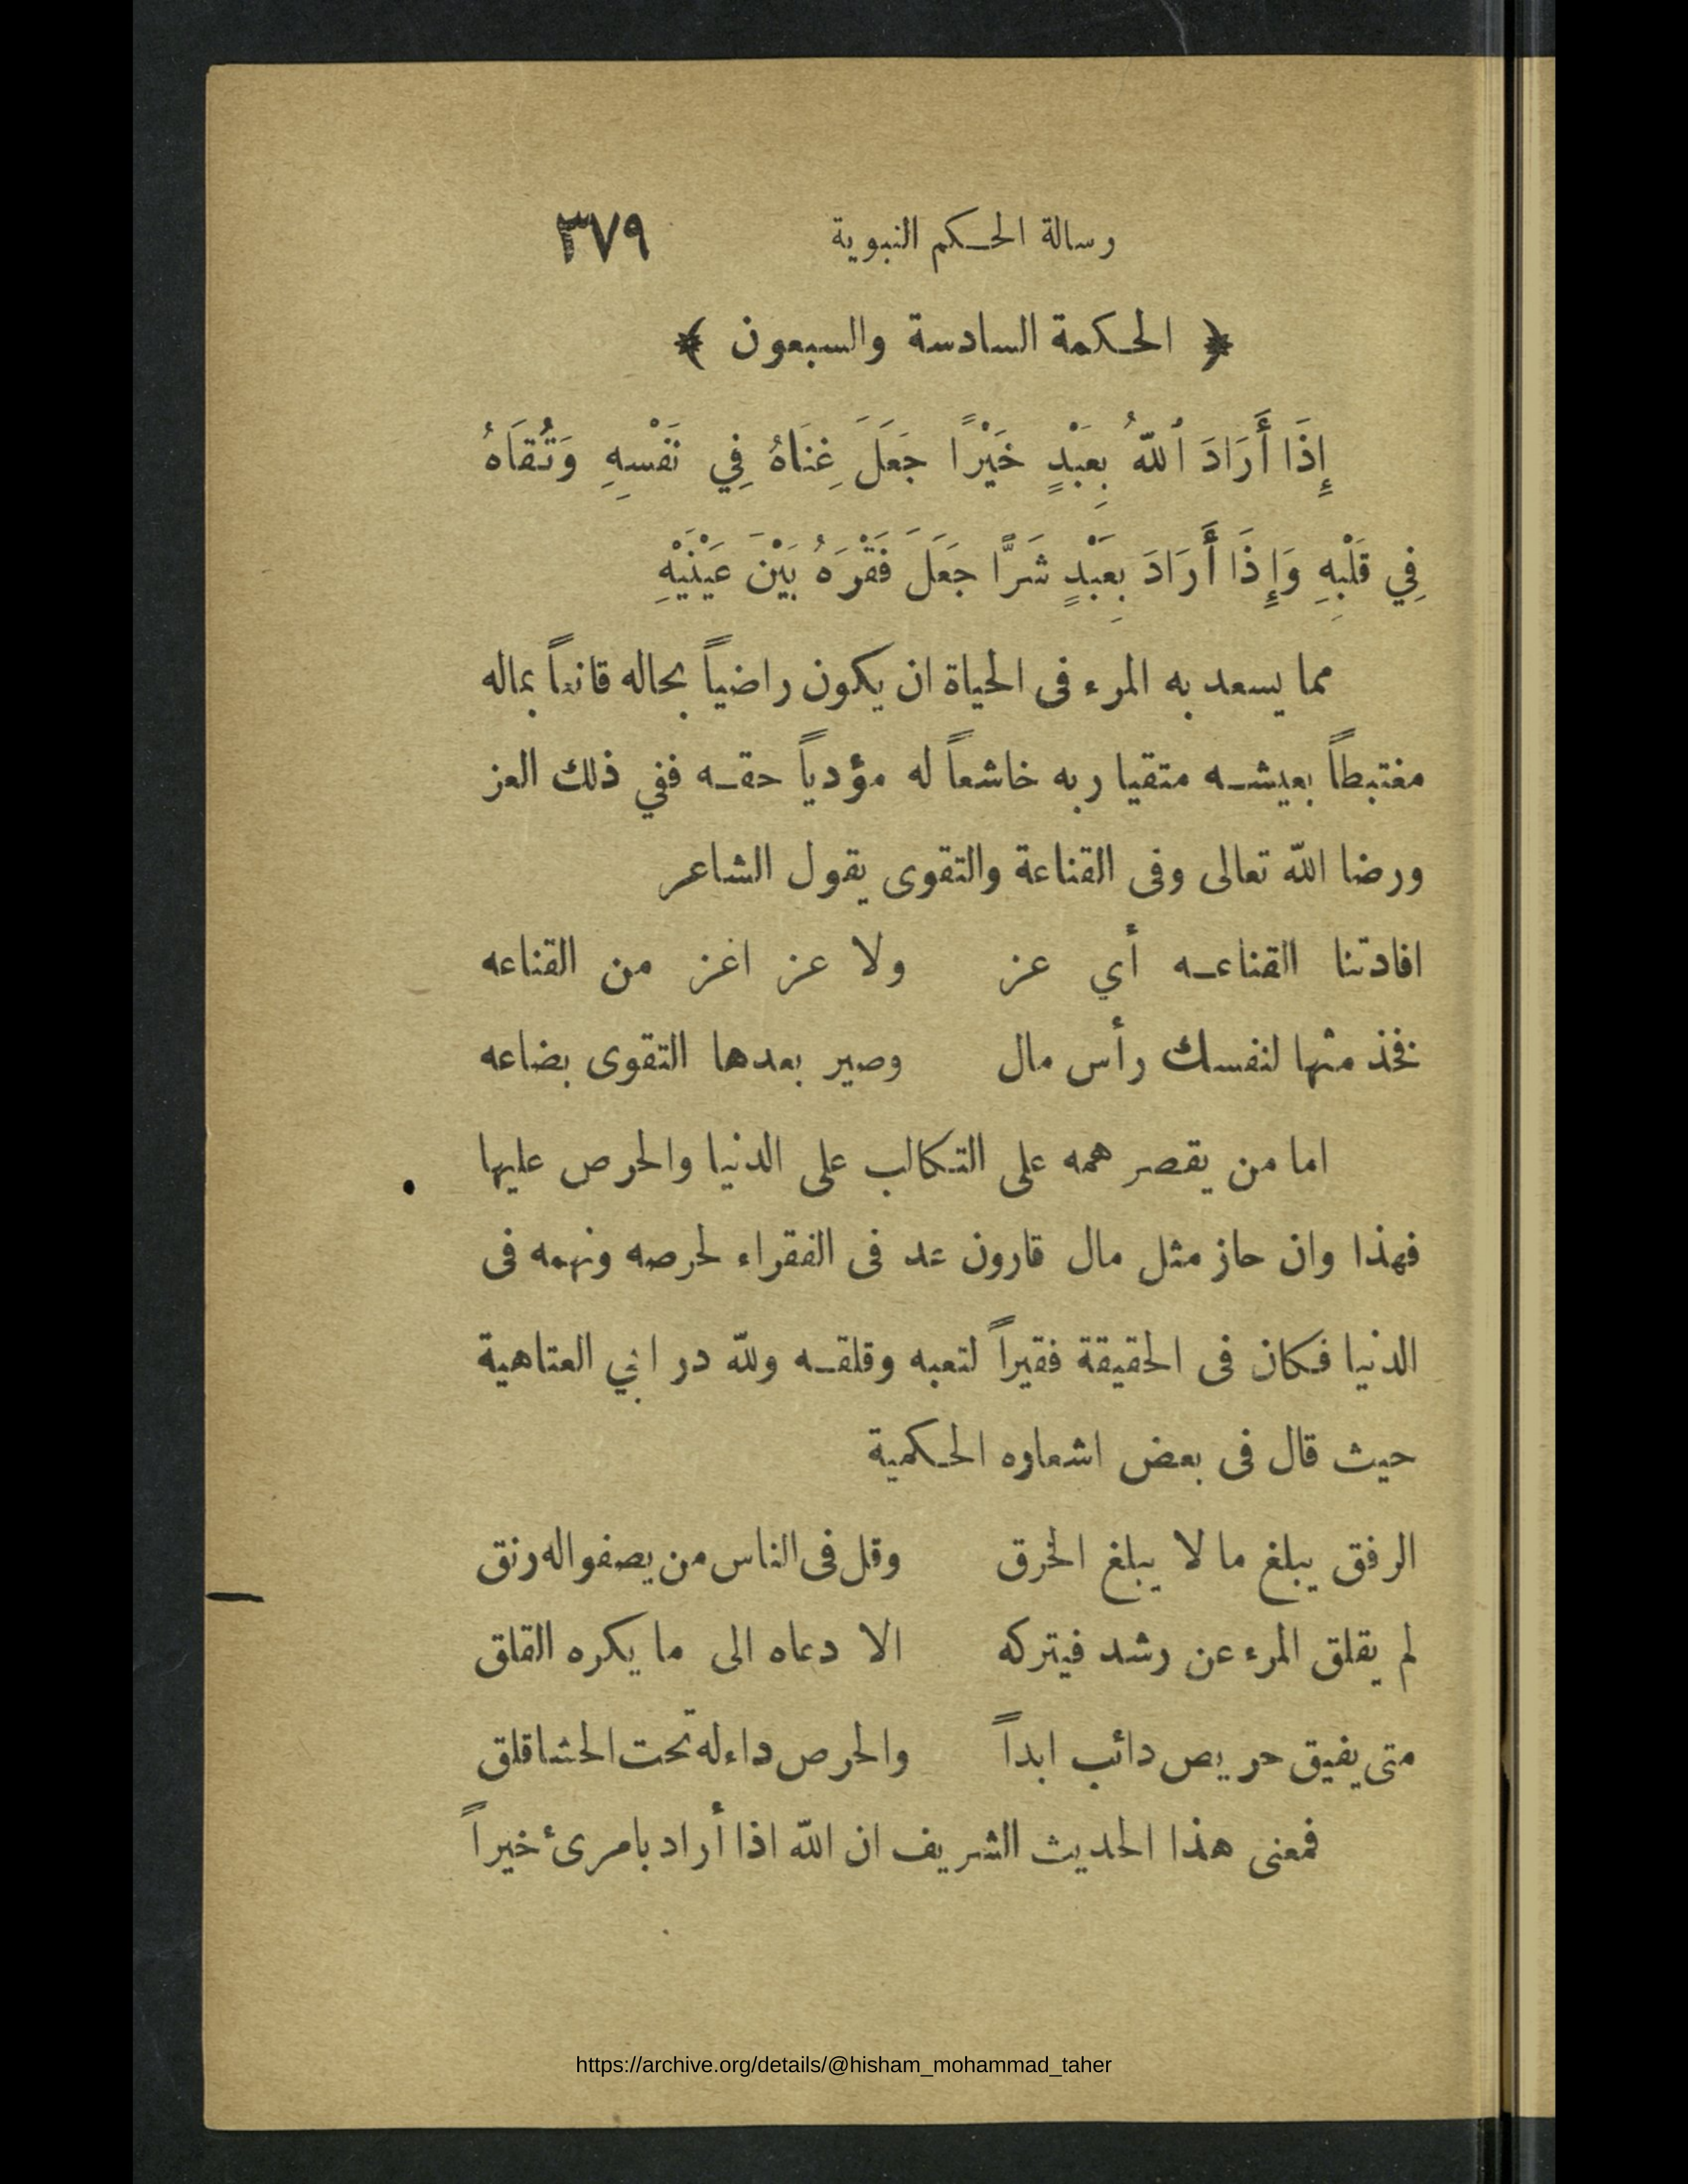 رسالة الحكم النبوية ٣٧٩
﴿ الحكمة السادسة والسبعون ﴾
إِذَا أَرَادَ ٱللّٰهُ بِعَبْدٍ خَيْرًا جَعَلَ غِنَاهُ فِي نَفْسِهِ وَتُقَاهُ
فِي قَلْبِهِ وَإِذَا أَرَادَ بِعَبْدٍ شَرًّا جَعَلَ فَقْرَهُ بَيْنَ عَيْنَيْهِ
مما يسعد به المرء فى الحياة ان يكون راضياً بحاله قانعاً بماله
مغتبطاً بعيشه متقيا ربه خاشعاً له مؤدياً حقه ففي ذلك العز
ورضا الله تعالى وفى القناعة والتقوى يقول الشاعر
افادتنا القناعه أي عز ولا عز اغز من القناعه
فخذ منها لنفسك رأس مال وصير بعدها التقوى بضاعه
اما من يقصر همه على التكالب على الدنيا والحرص عليها
فهذا وان حاز مثل مال قارون عد فى الفقراء لحرصه ونهمه فى
الدنيا فكان فى الحقيقة فقيراً لتعبه وقلقه ولله در ابي العتاهية
حيث قال فى بعض اشعاره الحكمية
الرفق يبلغ ما لا يبلغ الخرق وقل فى الناس من يصفواله رنق
لم يقلق المرء عن رشد فيتركه الا دعاه الى ما يكره القلق
متى يفيق حريص دائب ابداً والحرص داء له تحت الحشا قلق
فمعنى هذا الحديث الشريف ان الله اذا أراد بامرئ خيراً
https://archive.org/details/@hisham_mohammad_taher